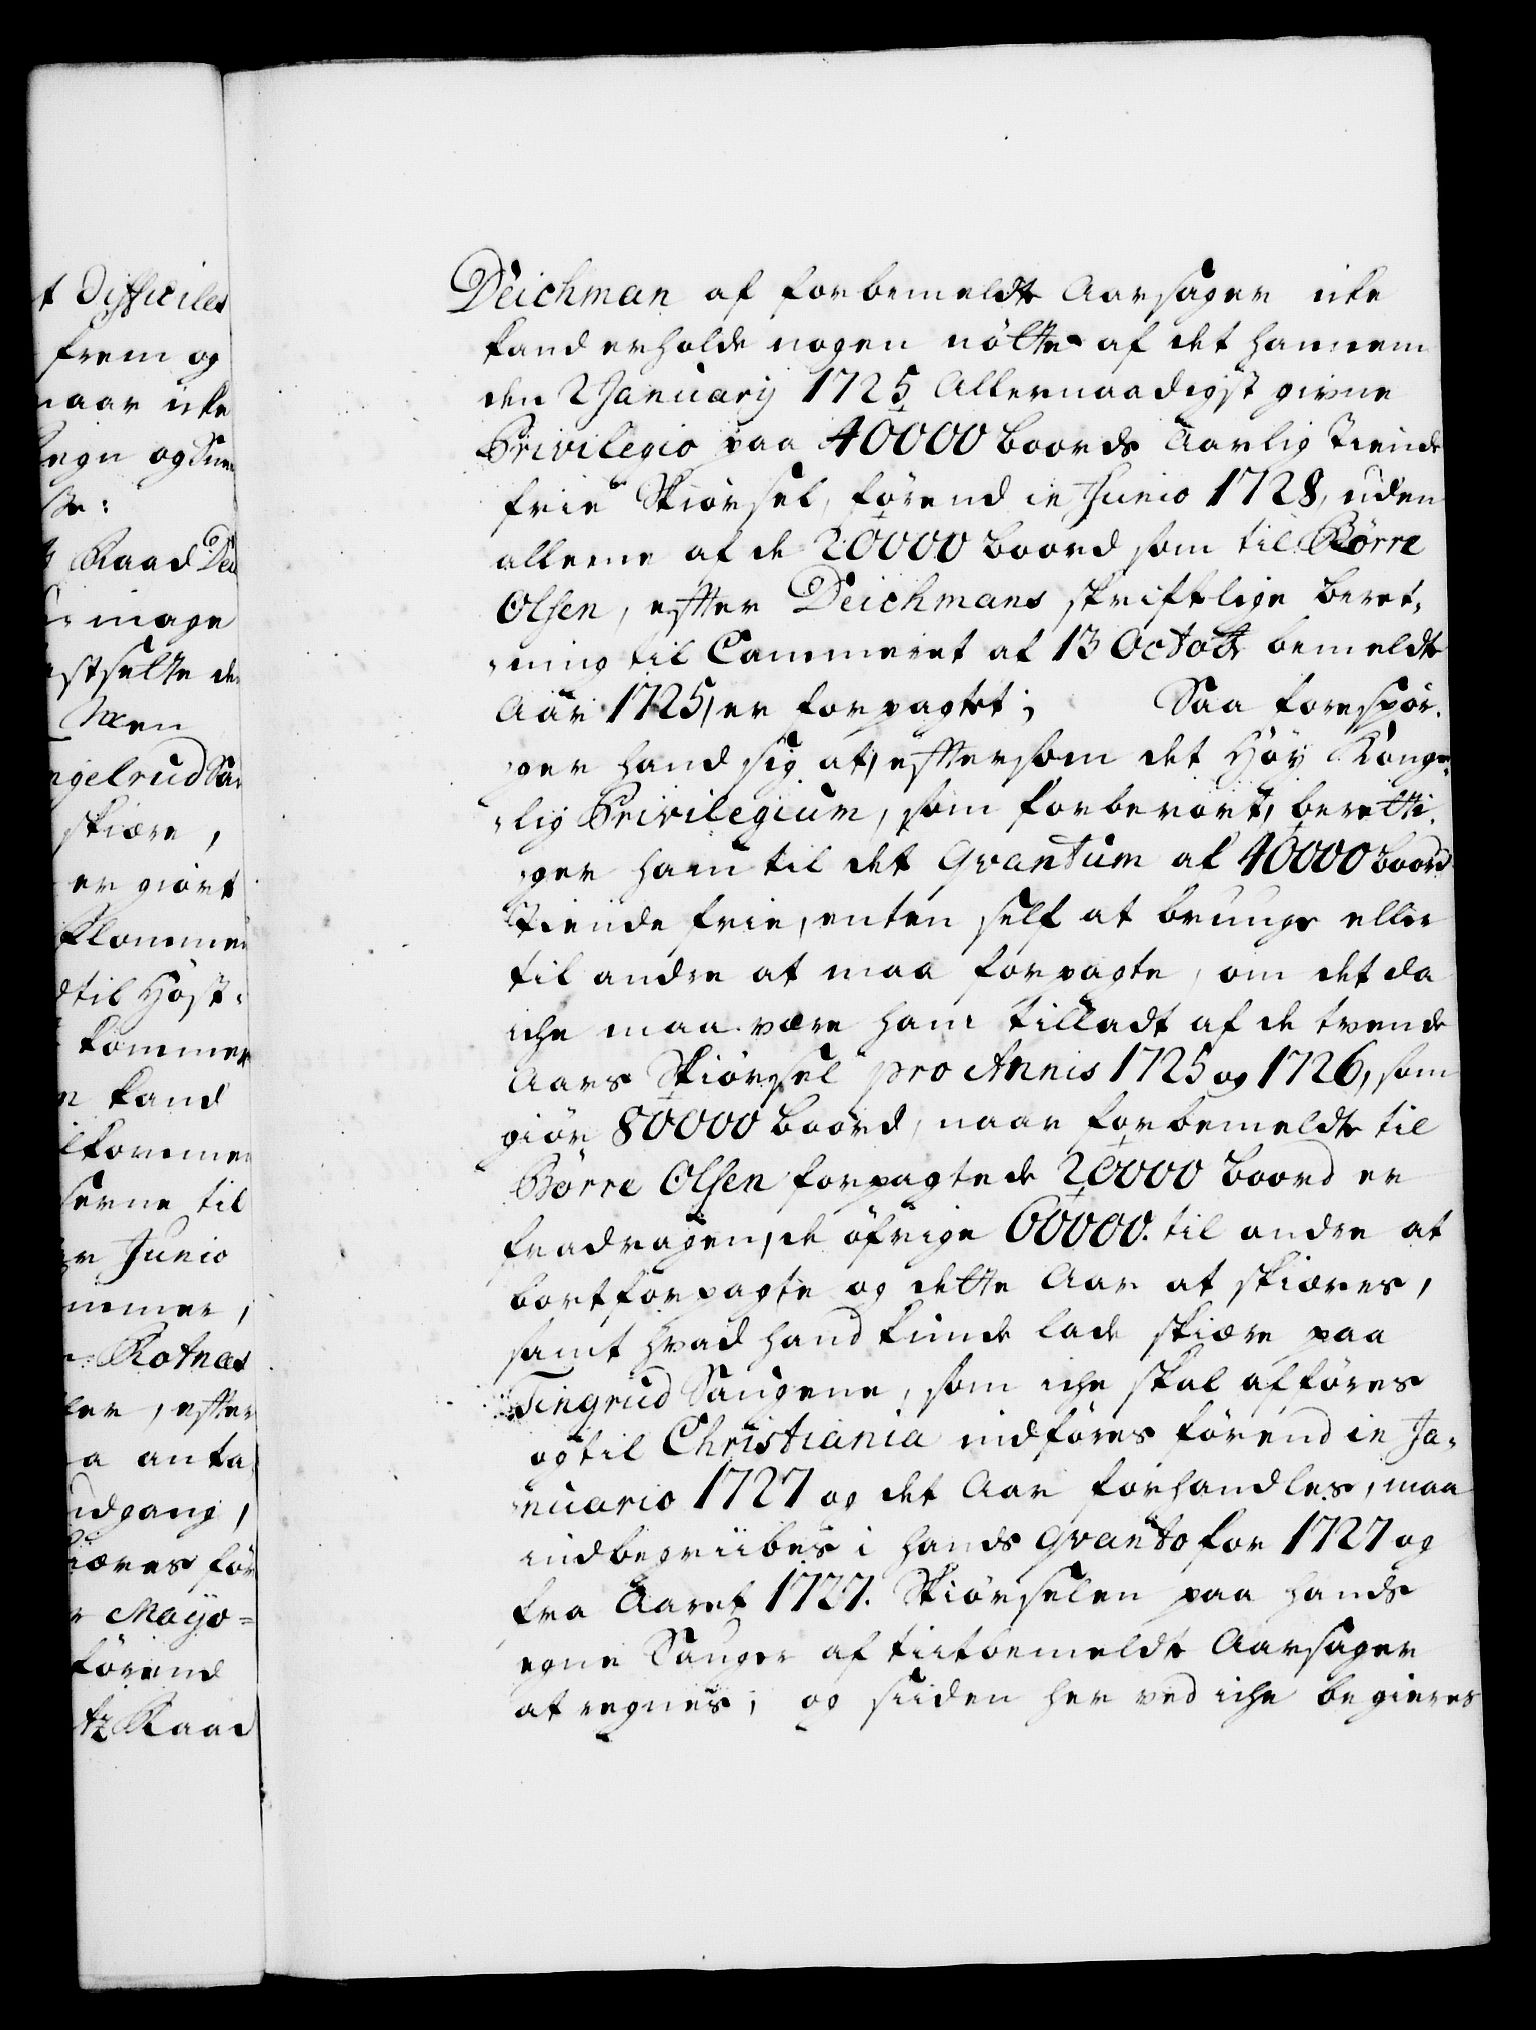 t Difficiles
frem og
naar icke
egn og Sne
Raad Dei
mage
stselte de
Men
ngelrud Sa
skiære,
er giort
flommen
til Høst-
kommer
n kand
lkommen
serne til
er Junio
mmer,
Rotnæs
ler, effter
a anta
udgang,
iæres før
r Mayo=
førend
tz Raad
Deichman af forbemeldte Aarsager icke
kand erholde nogen nötte af det hannem
den 2 January 1725 Allernaadigst givne
Privilegio paa 40000 boords Aarlig tiende
frie Skiörsel, förend in Junio 1728, uden
alleene af de 20000 boord som til Börre
Olsen, effter Deichmans skriftlige beret-
ning til Cammeret af 13 Octobr bemeldte
Aar 1725, er forpagtet; Saa forespör-
ger hand sig at, efftersom det Höy Konge-
lig Privilegium, som forberört, beretti-
ger ham til det Qvantum af 40000 boord
tiende frie, enten self at bruuge eller
til andre at maa forpagte, om det da
iche maa være ham tilladt af de tvende
Aars Skiörsel pro Annis 1725 og 1726, som
giör 80000 boord, naar forbemeldte til
Börre Olsen forpagtede 20000 boord er
fradragen, de öfrige 60000. til andre at
bortforpagte og dette Aar at skiæres,
samt hvad hand kunde lade skiære paa
Tingrud Saugene, som iche skal afföres
og til Christiania indföres förend in Ja-
nuario 1727 og det Aar forhandles, maa
indbegriibes i hands qvanto for 1727 og
fra Aaret 1727. Skiörselen paa hands
egne Sauger af titbemeldte Aarsager
at regnes; og siiden her ved iche begieres